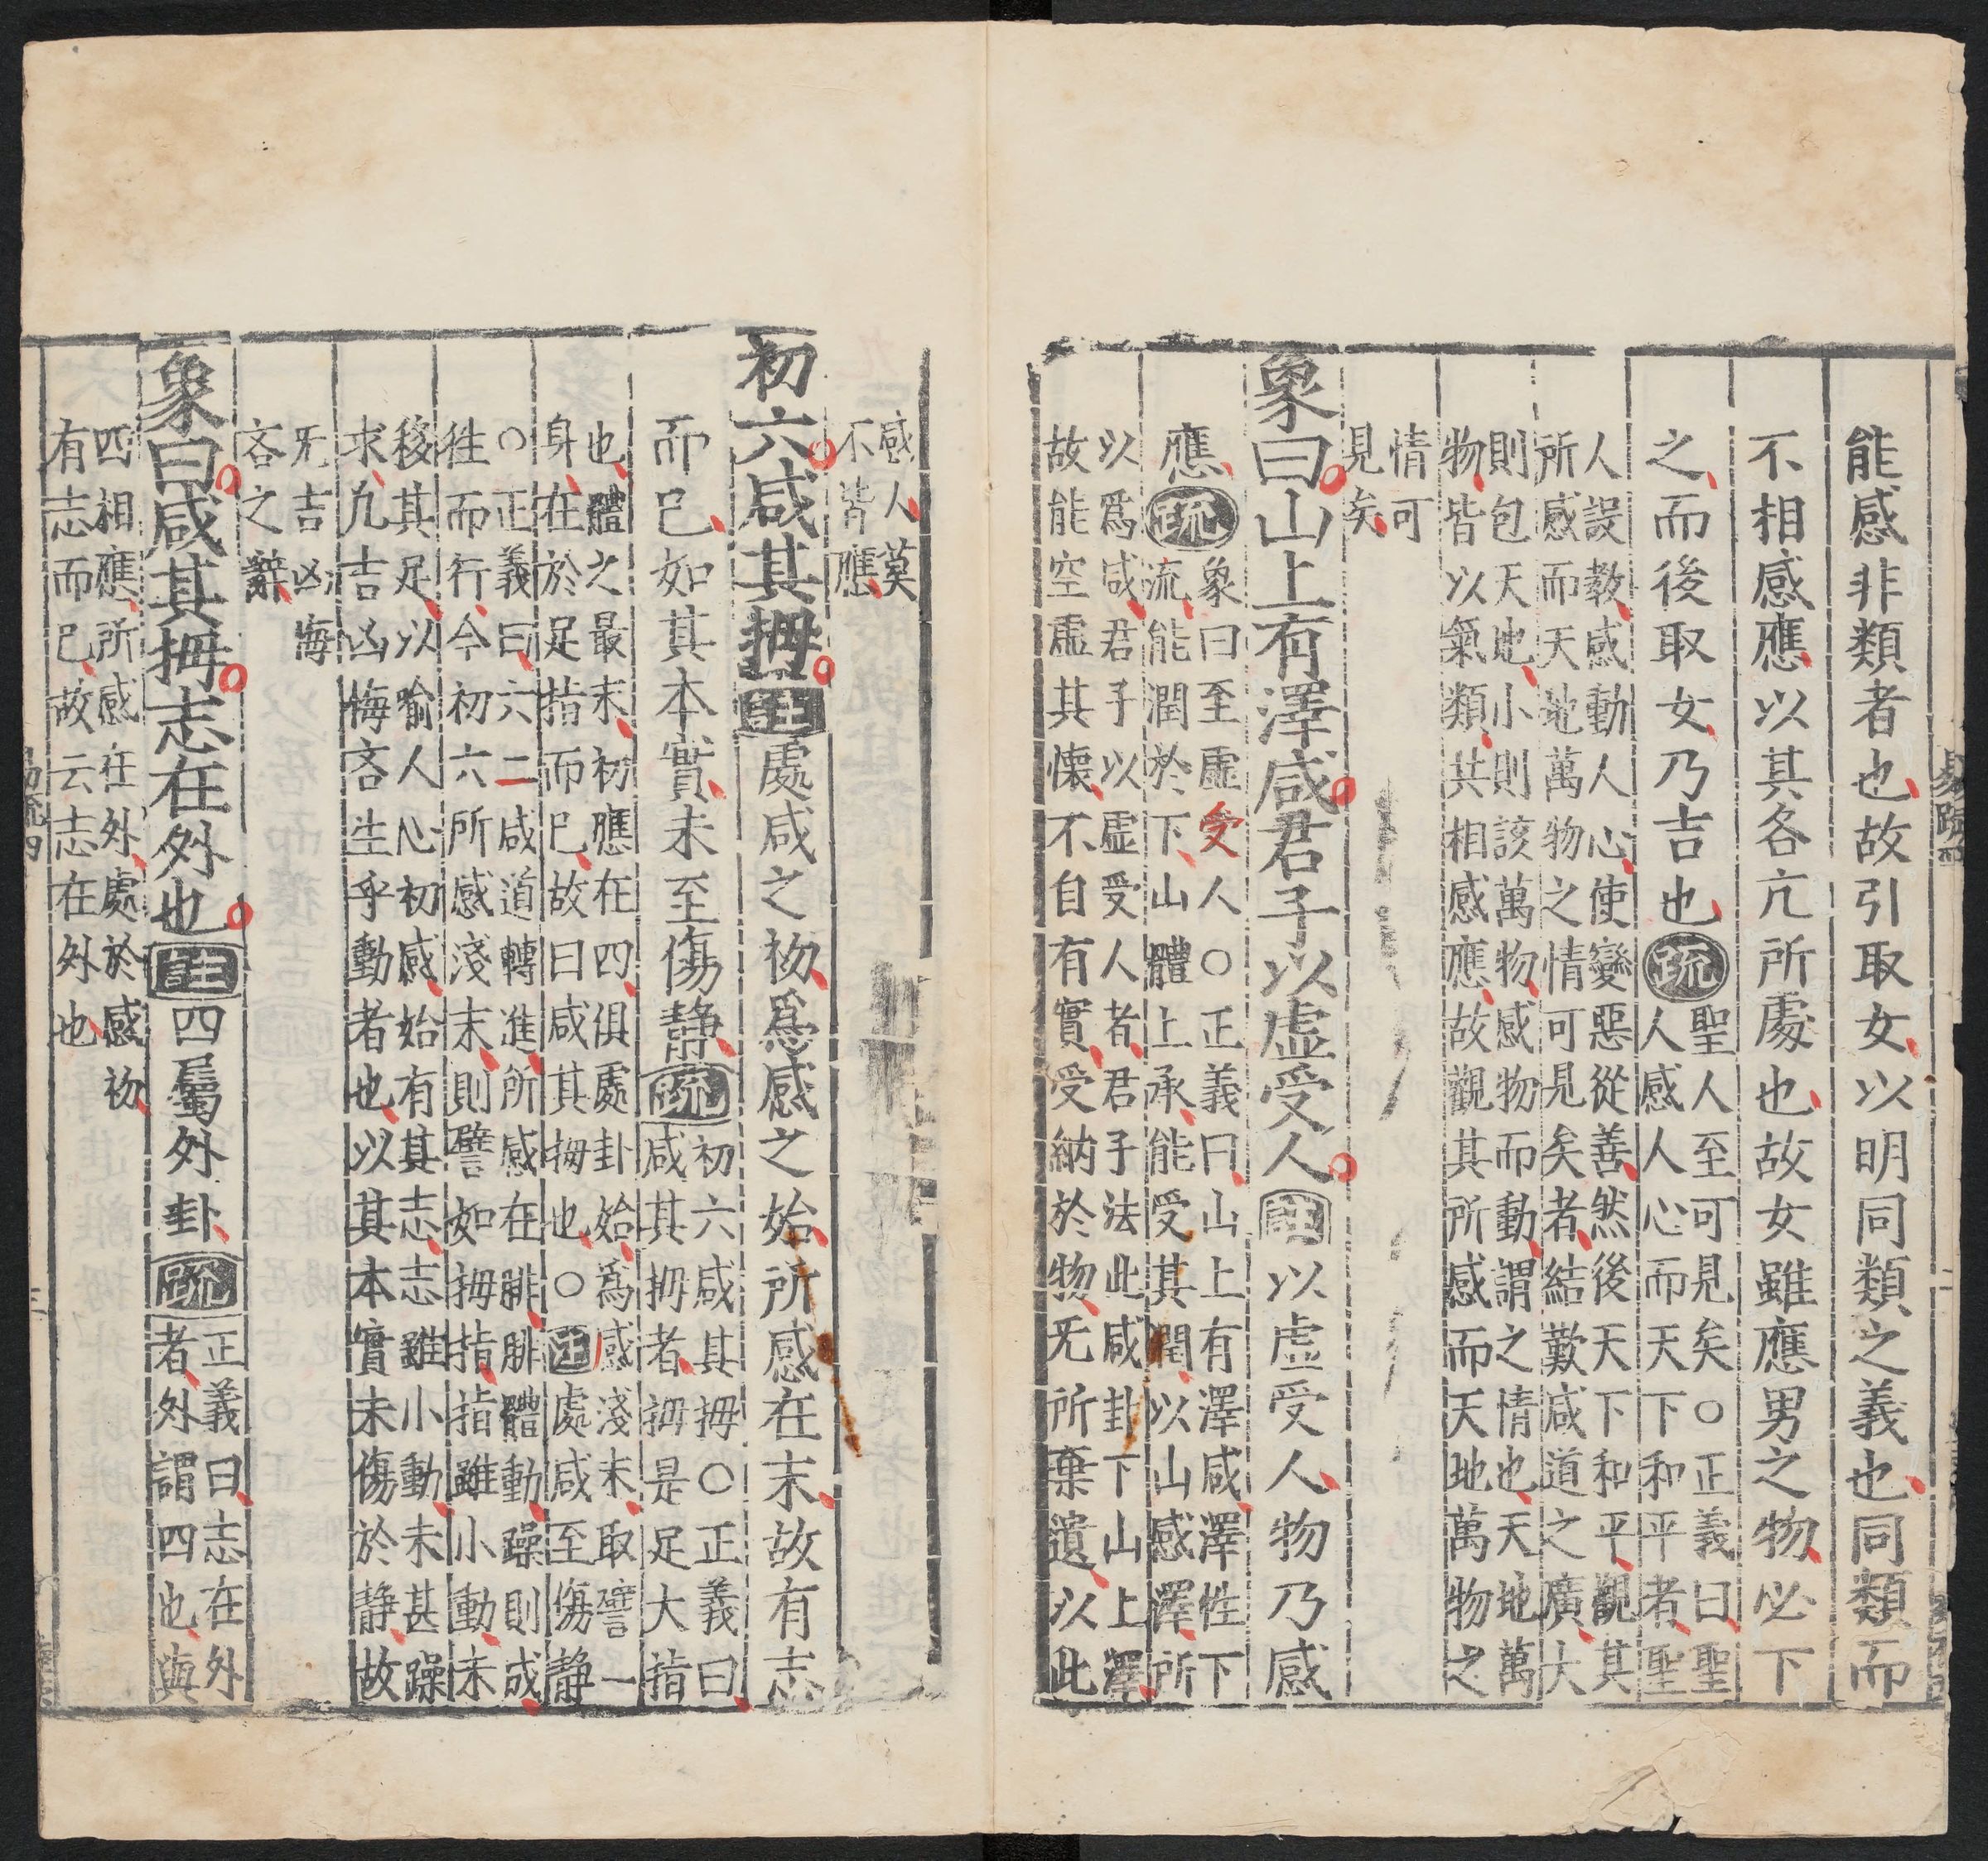 能感非類者也故引取女以明同類之義也同類而
不相感應以其各亢所處也故女雖應男之物必下
之而後取女乃吉也疏聖人至可見矣○正義曰聖
人感人心而天下和平者聖
人設教感動人心使變惡從善然後天下和平觀其
所感而天地萬物之情可見矣者結歎咸道之廣大
則包天地小則該萬物感物而動謂之情也天地萬
物皆以氣類共相感應故觀其所感而天地萬物之
情可
見矣
象曰山上有澤咸君子以虛受人註以虛受人物乃感
應疏象曰至虛受人○正義曰山上有澤咸澤性下
流能潤於下山體上承能受其潤以山感澤所
以爲咸君子以虛受人者君子法此咸卦下山上澤
故能空虛其懷不自有實受納於物无所棄遺以此
感人莫
不皆應
初六咸其拇註處咸之初爲感之始所感在末故有志
而已如其本實未至傷靜疏初六咸其拇○正義曰
咸其拇者拇是足大指
也體之最末初應在四俱處卦始爲感淺末取譬一
身在於足指而已故曰咸其拇也○註處咸至傷静
○正義曰六二咸道轉進所感在腓腓體動躁則成
徃而行今初六所感淺末則譬如拇指指雖小動未
移其足以喻人心初感始有其志志雖小動未甚躁
求凢吉凶悔吝生乎動者也以其本實未傷於静故
无吉凶悔
吝之辭
象曰咸其拇志在外也註四屬外卦疏正義曰志在外
者外謂四也與
四相應所感在外處於感初
有志而已故云志在外也
易疏四
二